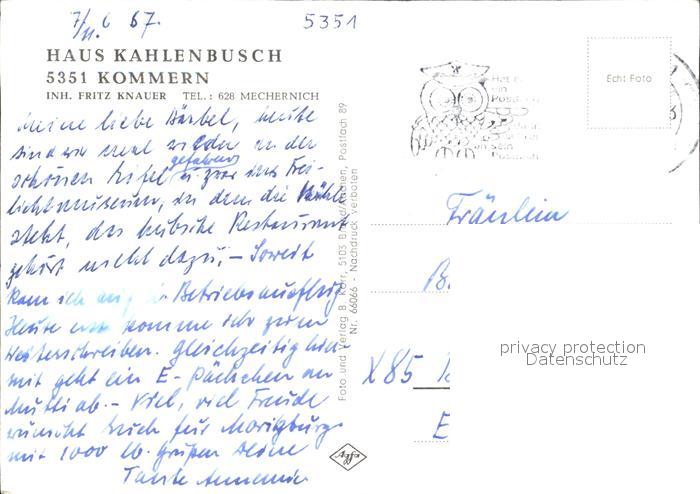 7/11. 6 67.
5351
HAUS KAHLENBUSCH
5351 KOMMERN
INH. FRITZ KNAUER TEL.: 628 MECHERNICH
Meine liebe Bärbel, heute
sind wir mal wieder in der
schönen Eifel gefahren u. zwar ins Frei-
lichtmuseum, in dem die Mühle
steht, das hübsche Restaurant
gehört nicht dazu. – Soweit
kam ich auf Betriebsausflug
Heute komme ich zum
Weiterschreiben. Gleichzeitig hier-
mit geht ein E-Päckchen an
Mutti ab. – Viel, viel Freude
wünscht Euch für Moritzburg
mit 1000 lb. Grüßen Deine
Tante Annemie
Foto und Verlag B. Körr, 5103 Brand/Aachen, Postfach 89
Nr. 66066 - Nachdruck verboten
Agfa
Echt Foto
ein
Fräulein
B.
X85
E
privacy protection
Datenschutz